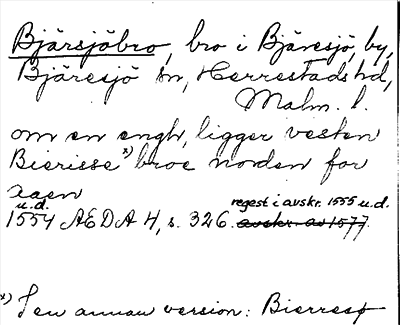 Bjärsjöbro, bro i Bjäresjö by,
Bjäresjö sn, Herrestads hd,
Malm. l.
om en engh, ligger vesten
Bierisse x) broe norden for
aaen
u.d. regest i avskr. 1555 u.d.
1554 ÆDA 4, s. 326. avskr. av 1577.
x) I en annan version: Bierresø